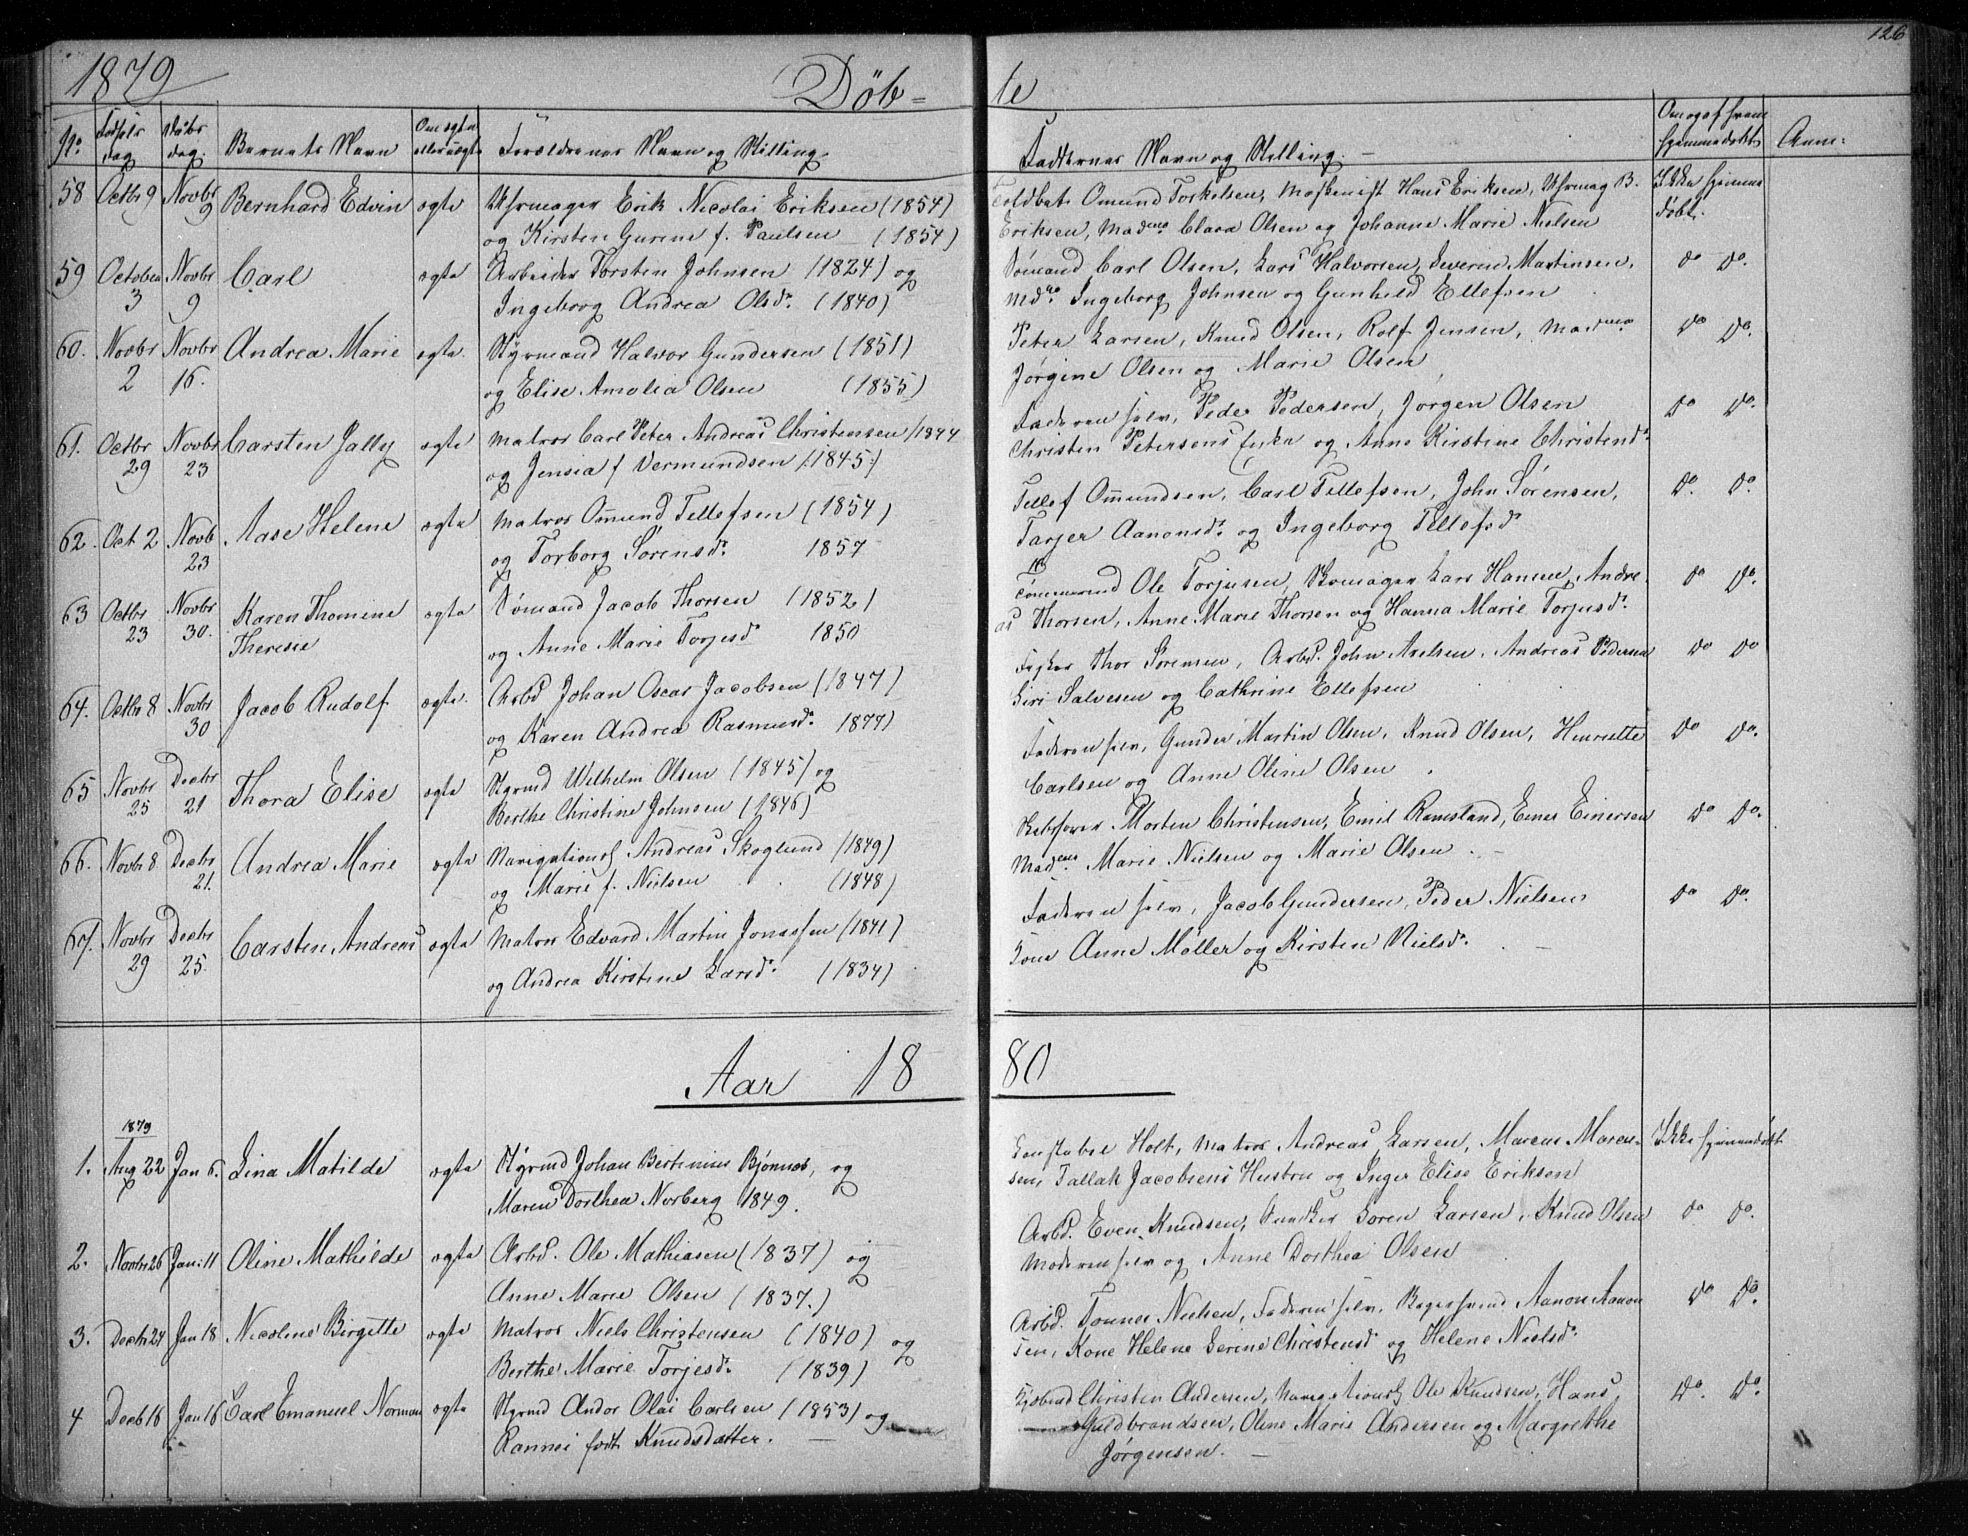 126
1879 Døb- te
No Fødsels dag Daabs dag. Barnets Navn Om ægte eller uægte Forældrenes Navn og Stilling. Faddernes Navn og Stilling. — Anm:
58 Octbr 9 Novbr 9 Bernhard Edvin ægte Uhrmager Erik Nicolai Eriksen (1854) Omund Torkelsen, Maskenist Hans Eriksen, Uhrmag B. Ikke hjemme
og Kirsten Gurine f. Paulsen (1854) Eriksen, Madmne Clara Olsen og Johanne Marie Nielsen døbt.
59 October 3 Novbr 9 Carl ægte Arbeider Torsten Johnsen (1824) og Sømand Carl Olsen, Lars Halvorsen, Severin Martinsen, do do.
Ingeborg Andrea Olsdr. (1840) Ingeborg Johnsen og Gunhild Ellefsen
60. Novbr 2 Novbr 16. Andrea Marie ægte. Styrmand Halvor Gundersen (1851) Peter Larsen, Knud Olsen, Rolf Jensen, do do.
og Elise Amalia Olsen (1855) Jørgine Olsen og Marie Olsen
61. Octbr 29 Novbr 23 Carsten Jally ægte Matros Carl Peter Andreas Christensen (1844 Faderen selv, Peder Pedersen, Jørgen Olsen do do.
og Jensia f Vermundsen (1845) Christen Petersens Enke og Anne Kirstine Christensdr.
62. Oct 2 Novb 23 Aase Helene ægte Matros Omund Tellefsen (1854) Tellef Omundsen, Carl Tellefsen, John Sørensen, do. do.
og Torborg Sørensdr. 1857 Tarjer Aanonsdr. og Ingeborg Tellefsdr
63 Octbr 23 Novbr 30. Karen Thomine ægte Sømand Jacob Thorsen (1852) Tømmermd Ole Torjusen, Skomager Lars Hansen, Andre do do.
Therese og Anne Marie Torjesdr 1850 as Thorsen, Anne Marie Thorsen og Hanna Marie Torjusdr.
64. Octbr 8 Novbr 30 Jacob Rudolf ægte. Arbd Johan Oscar Jacobsen (1847) Fisker Thor Sørensen, Arbd. John Axelsen, Andreas Pedersen do do
og Karen Andrea Rasmusdr. 1847) Siri Salvesen og Cathrine Ellefsen
65 Novbr 25 Decbr 21 Thora Elise ægte Styrmd Wilhelm Olsen (1845) og Faderen selv, Gunder Martin Olsen, Knud Olsen, Henriette do do.
Berthe Christine Johnsen (1846) Carlsen og Anne Oline Olsen
66. Novbr 8 Decbr 21. Andrea Marie ægte Navigationsl Andreas Skoglund (1849) Skibsfører Morten Christensen, Emil Ramsland, Enes Einersen do do.
og Marie f. Nielsen (1848) Marie Nielsen og Marie Olsen. —
67. Novbr 29 Decbr 25. Carsten Andreas ægte Matros Edvard Martin Jonassen (1841) Faderen selv, Jacob Gundersen, Peder Nielsens do do.
og Andrea Kirstine Larsdr. (1834) Kone Anne Møller og Kirsten Nielsdr. —
Aar 18 80
1879
1. Aug 22 Jan 6. Lina Matilde ægte Styrmd Johan Bertinius Bjønnes, og Constabel Holt, Matros Andreas Larsen, Marcus Marcu- Ikke hjemmedøbt
Maren Dorthea Norberg 1849. sen, Tallak Jacobsens Hustru og Inger Elise Eriksen
2. Novbr 26 Jan: 11 Oline Mathilde ægte Arbd. Ole Mathiasen (1837) og Arbd. Even Knudsen, Søren Larsen, Knud Olsen do do.
Anne Marie Olsen (1837.) Moderen selv og Anne Dorthea Olsen
3. Decbr 24 Jan 18 Nicoline Birgitte ægte Matros Niels Christensen (1840) og Arbd. Tønnes Nielsen, Faderen selv, Bagersvend Aanon Aanon do do.
Berthe Marie Torjesdr. (1839) sen, Kone Helene Serine Christensdr og Helene Nielsdr.
4 Decb 16 Jan 18 Carl Emanuel Norman ægte Styrmd Andor Olai Carlsen (1853) og Christen Andersen, Navigationsl Ole Knudsen, Hans do. do.
Rannei født Knudsdatter. — Guldbrandsen, Oline Marie Andersen og Margrethe
Jørgensen. —